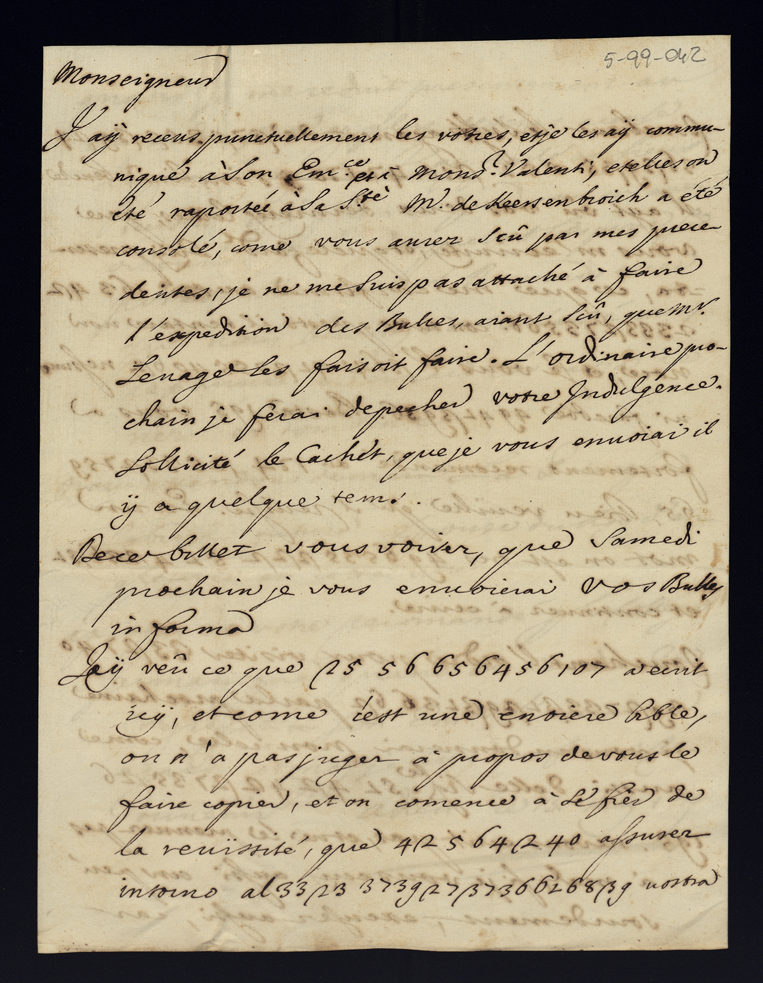 5-99-042
Monseigneur
J'aÿ receus punctuellement les votres, et je les aÿ commu-
niqué à Son Em.ce et à Mons.r Valenti, et elles on
été raportée à Sa S.tè M.r de Keersenbroich a été
consolé, come vous aurez sceû par mes prece
dentes, je ne me suis pas attaché à faire
l'expedition des Bulles, aiant sceû, que mr.
Lenage les faisoit faire. L'ordinaire pro-
chain je ferai depecher votre Indulgence.
Sollicité le Cachét, que je vous envoiai il
ÿ a quelque tems.
De ce billet vous voirez, que Samedi
prochain je vous envoierai vos Bulles
in forma
J'aÿ veû ce que 125 56656456107 a ecrit
icÿ, et come c'est une entiere bible,
on n'a pas juger à propos de vous le
faire copier, et on comence à sé fiér de
la reuissité, que 42564240 assurer
intorno al 33/23 3739/27/37366268/39 nostra